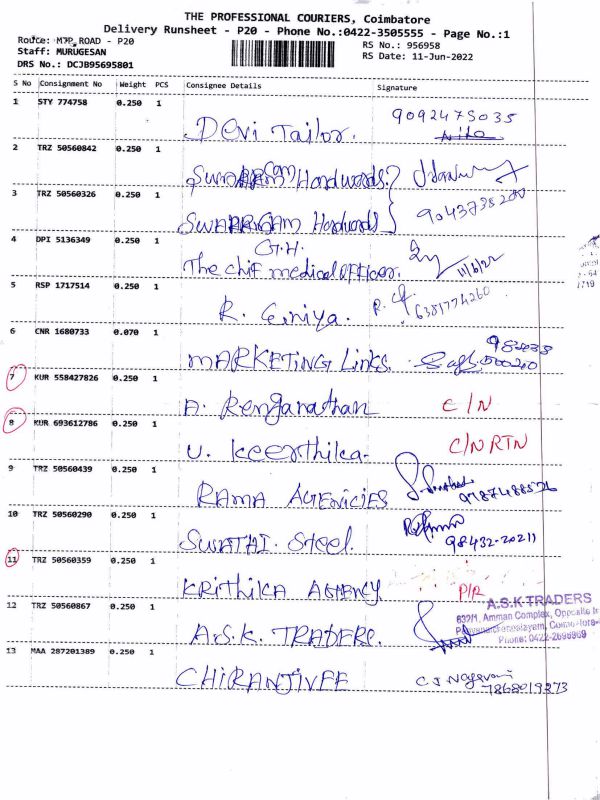 THE PROFESSIONAL COURIERS, Coimbatore
Delivery Runsheet - P20 - Phone No.:0422-3505555 - Page No.:1
Route: MTP ROAD - P20
RS No.: 956958
Staff: MURUGESAN
RS Date: 11-Jun-2022
DRS No.: DCJB95695801
S No Consignment No Weight PCS Consignee Details Signature
1 STY 774758 0.250 1 Devi Tailor. 9092475035
2 TRZ 50560842 0.250 1
3 TRZ 50560326 0.250 1 9043738200
4 DPI 5136349 0.250 1 G.H.
The chif medical officer. 11/6/22
5 RSP 1717514 0.250 1 R. 6381774260
6 CNR 1680733 0.070 1 MARKETING Links.
7 KUR 558427826 0.250 1 A. Renganathan C/N
8 KUR 693612786 0.250 1 U. Keerthika. C/N RTN
9 TRZ 50560439 0.250 1 RAMA AGENICIES
10 TRZ 50560290 0.250 1 SWATHI Steel. 98432-20211
11 TRZ 50560359 0.250 1 KRITHIKA AGENCY P/R
12 TRZ 50560867 0.250 1 A.S.K. TRADERS.
A.S.K TRADERS
632/1, Amman Complex, Opposite
Phone: 0422-2696969
13 MAA 287201389 0.250 1 CHIRANJIVEE C J Nagavani
7868019273